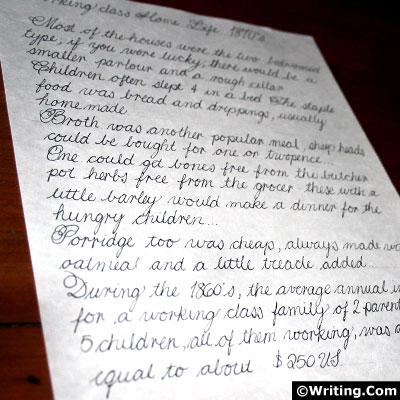 rking class Home Life 1870's
Most of the houses were the two bedroomed
type, if you were lucky, there would be a
smaller parlour and a rough cellar
Children often slept 4 in a bed The staple
food was bread and drippings, usually
home made.
Broth was another popular meal, sheep heads
could be bought for one or twopence...
One could get bones free from the butcher
pot herbs free from the grocer these with a
little barley would make a dinner for the
hungry children...
Porridge too was cheap, always made wi
oatmeal and a little treacle added...
During the 1860's, the average annual in
for a working class family of 2 parent
5 children, all of them working, was a
equal to about $250 US.
©Writing.Com